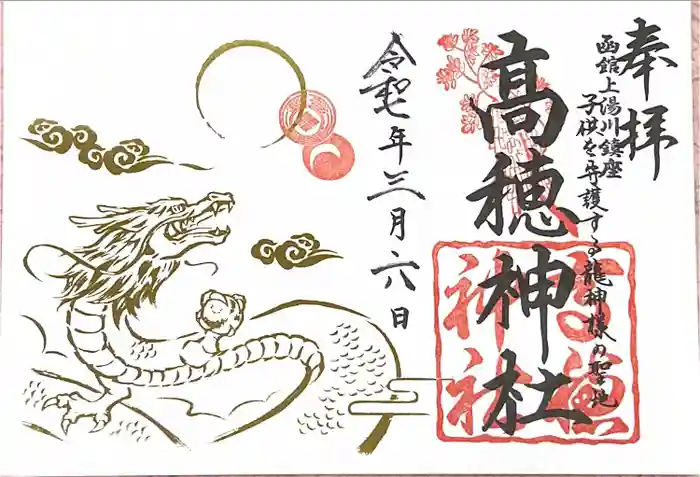 奉拝
函館上湯川鎮座
子供を守護する龍神様の聖地
高穂神社
高穂神社
令和七年三月六日